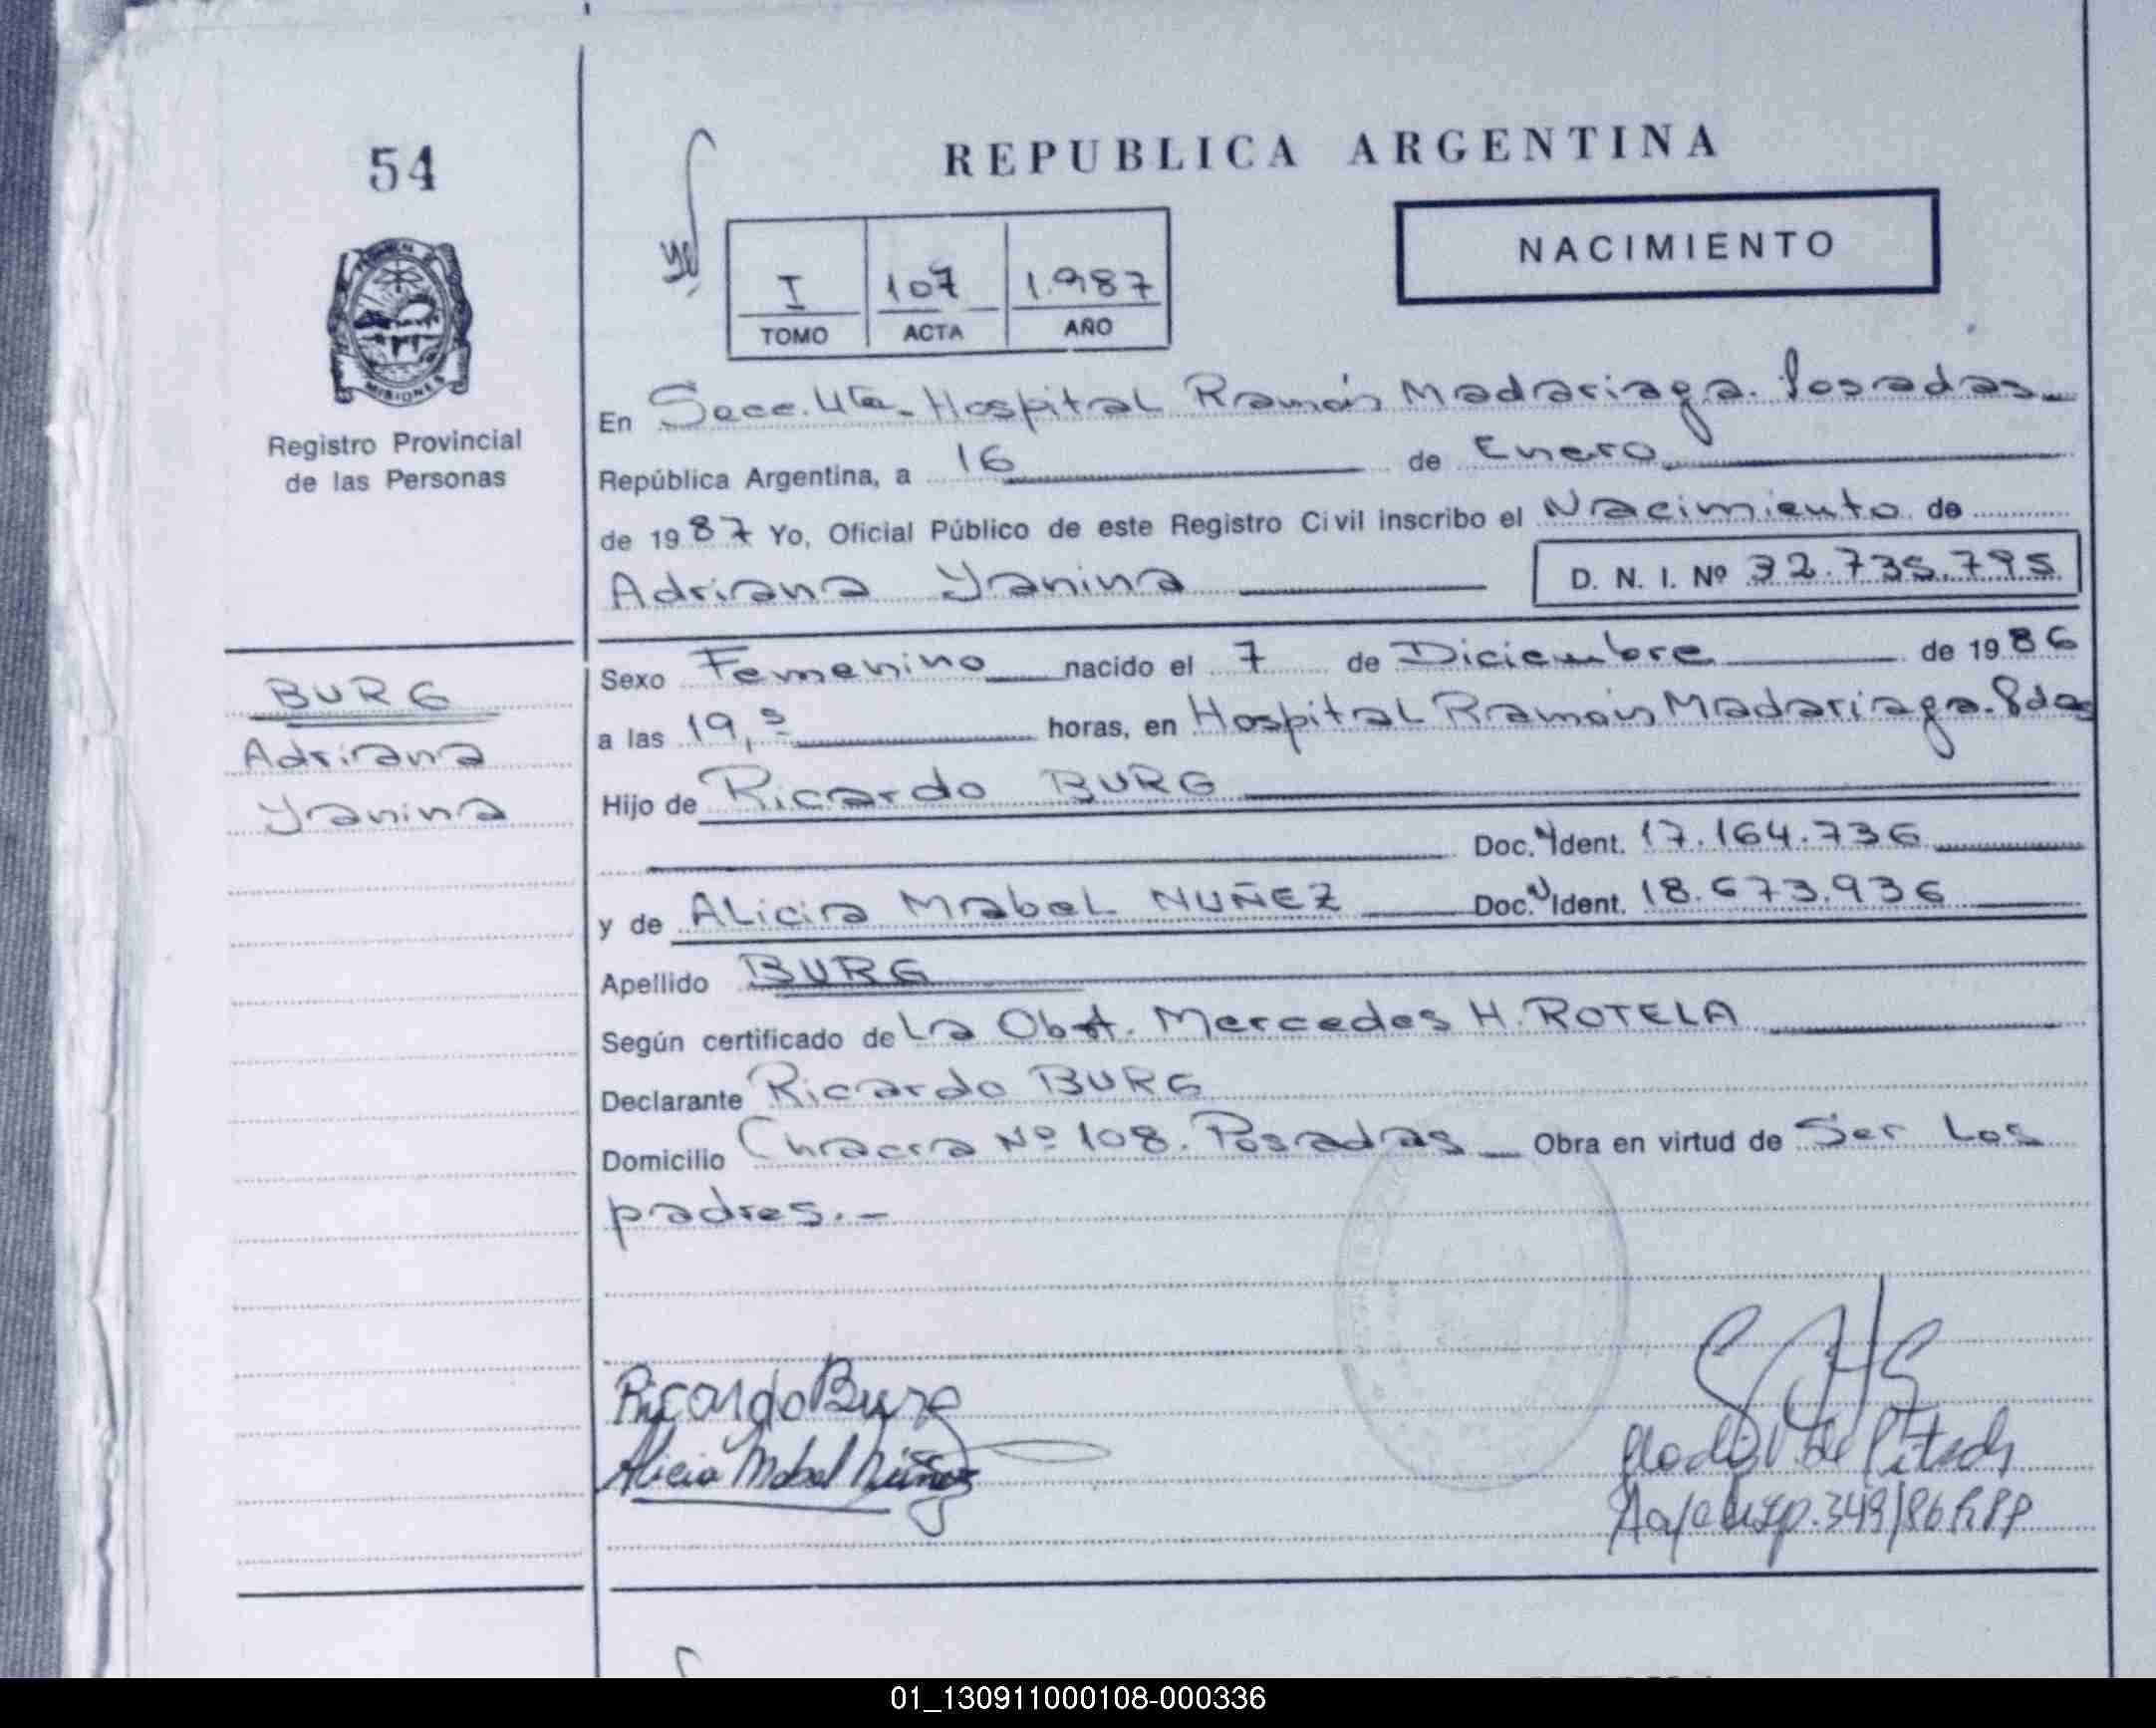 54
REPUBLICA ARGENTINA
NACIMIENTO
I 107 1.987
TOMO ACTA AÑO
MISIONES
Registro Provincial
de las Personas
En Secc. 4ta. Hospital Ramón Madariaga. Posadas
República Argentina, a 16 de Enero
de 1987 Yo, Oficial Público de este Registro Civil inscribo el Nacimiento de
Adriana Yanina D. N. I. Nº 32.735.795
BURG
Adriana
Yanina
Sexo Femenino nacido el 7 de Diciembre de 1986
a las 19,5 horas, en Hospital Ramón Madariaga. Pdas
Hijo de Ricardo BURG
Doc. Ident. 17.164.736
y de Alicia Mabel NUÑEZ Doc. Ident. 18.673.936
Apellido BURG
Según certificado de La Obst. Mercedes H. ROTELA
Declarante Ricardo BURG
Domicilio Chacra Nº 108. Posadas Obra en virtud de Ser Los
padres.-
Ricardo Burg
Alicia Mabel Núñez
349/86 RPP
01_130911000108-000336